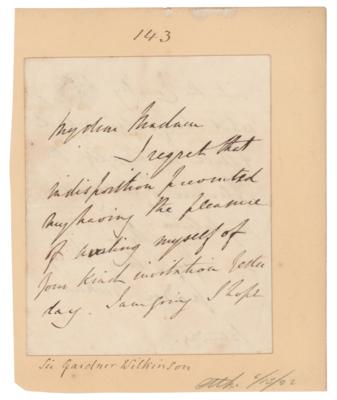 143
My dear Madam
I regret that
indisposition prevented
my having the pleasure
of availing myself of
your kind invitation yester
day. I am going I hope
Sir Gardner Wilkinson